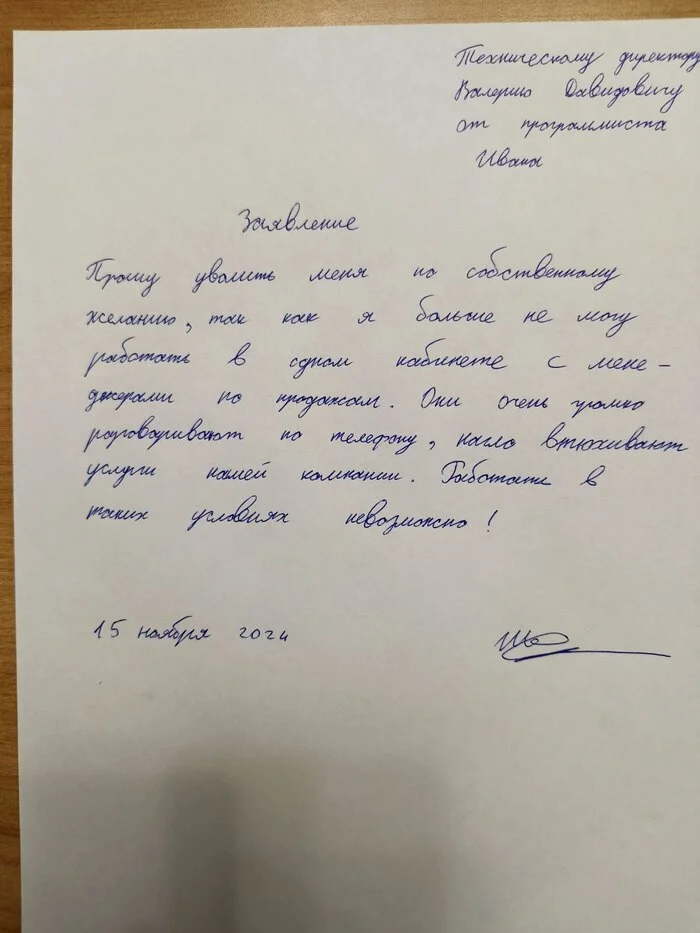 Техническому директору
Валерию Давидовичу
от программиста
Ивана
Заявление
Прошу уволить меня по собственному
желанию, так как я больше не могу
работать в одном кабинете с мене-
джерами по продажам. Они очень громко
разговаривают по телефону, нагло втюхивают
услуги нашей компании. Работать в
таких условиях невозможно!
15 ноября 2024